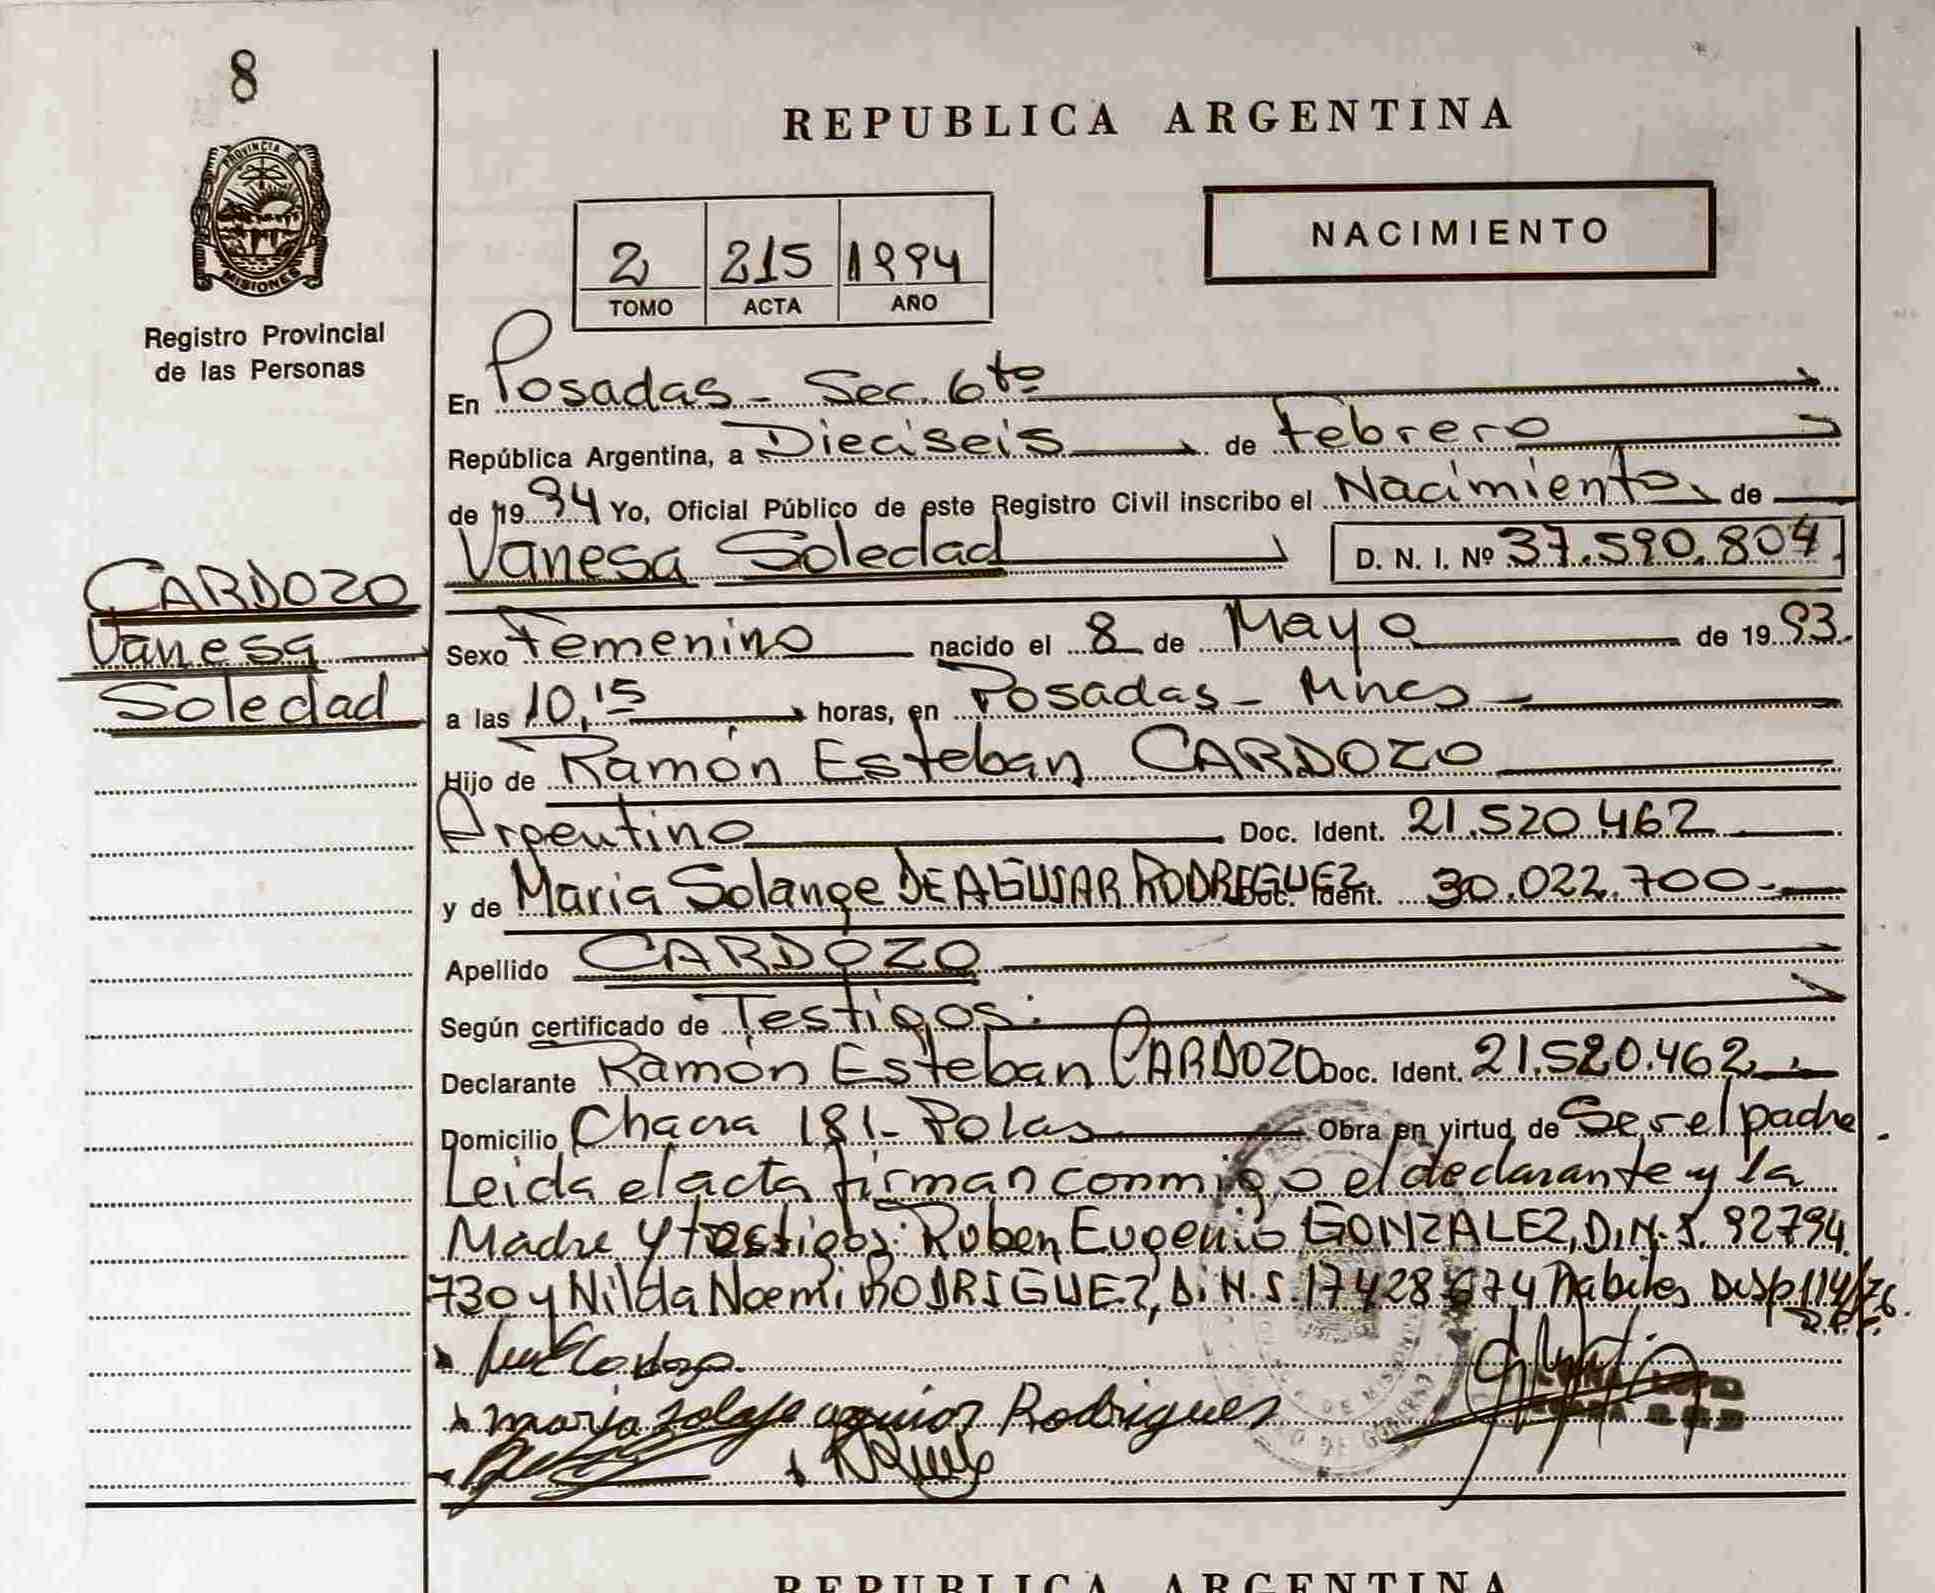 8
REPUBLICA ARGENTINA
PROVINCIA DE
MISIONES
Registro Provincial
de las Personas
2 215 1994
TOMO ACTA AÑO
NACIMIENTO
En Posadas - Sec. 6ta
República Argentina, a Dieciseis de Febrero
de 1994 Yo, Oficial Público de este Registro Civil inscribo el Nacimiento de
Vanesa Soledad D. N. I. Nº 37.590.804
CARDOZO
Vanesa
Soledad
Sexo Femenino nacido el 8 de Mayo de 1993.
a las 10,15 horas, en Posadas - Mnes
Hijo de Ramón Esteban CARDOZO
Argentino Doc. Ident. 21.520.462
y de Maria Solange DE AGUIAR RODREGUEZ Doc. Ident. 30.022.700-
Apellido CARDOZO
Según certificado de Testigos:
Declarante Ramón Esteban CARDOZO Doc. Ident. 21.520.462
Domicilio Chacra 181- Polas Obra en virtud de Ser el padre.
Leida el acta firman conmigo el declarante y la
Madre y testigos: Ruben Eugenio GONZALEZ, D.N.I. 92794
730 y Nilda Noemi RODRIGUEZ, D.N.I. 17428674 Habiles Disp. 114/76.
R.P.P.
Maria Solage aguiar Rodrigues
REPUBLICA ARGENTINA